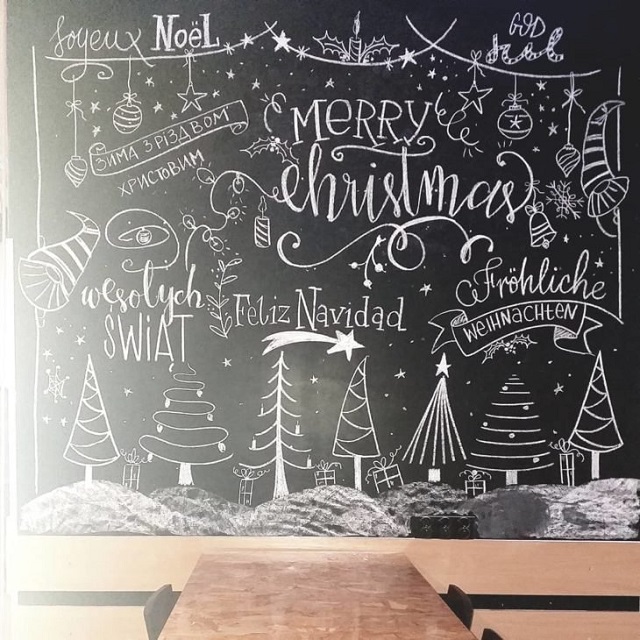 Joyeux Noël
GOD
Jul
MERRY
Christmas
ЗИМА З РІЗДВОМ
ХРИСТОВИМ
wesołych
ŚWIĄT
Feliz Navidad
Fröhliche
WEIHNACHTEN